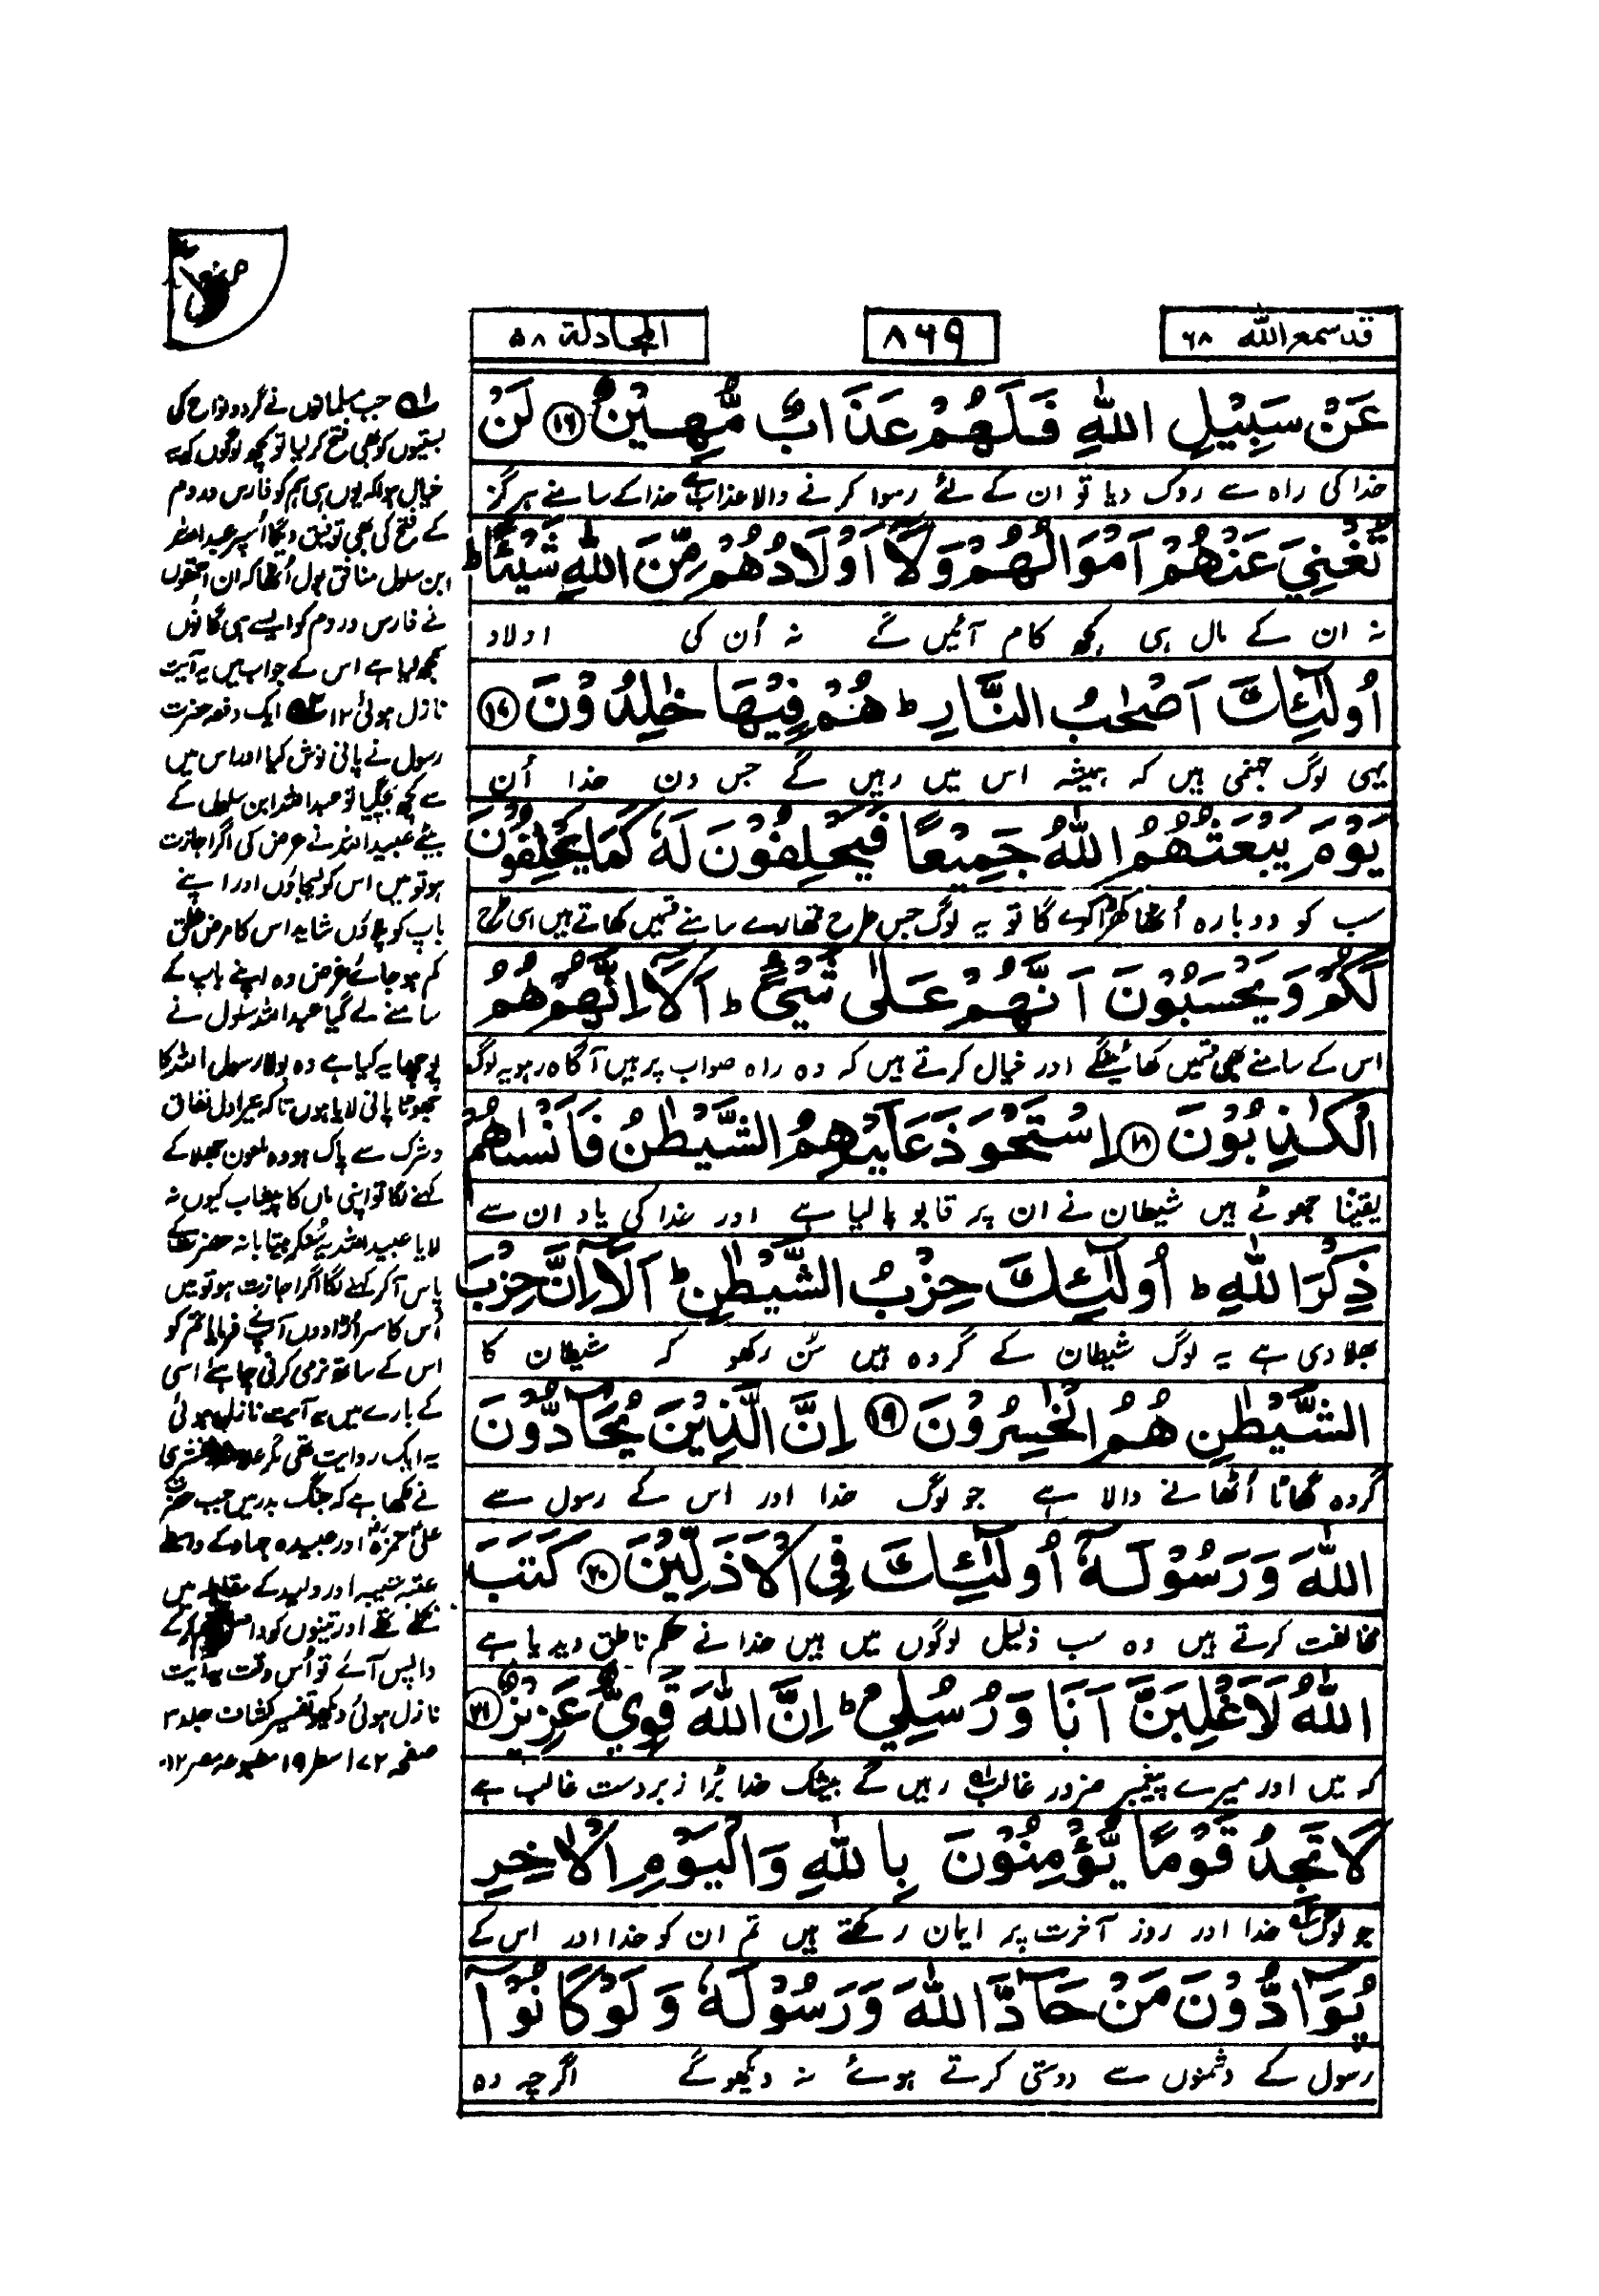 قد سمع الله ۲۸
۸۶۹
المجادلة ۵۸
عَنْ سَبِيْلِ اللّٰهِ فَلَهُمْ عَذَابٌ مُّهِيْنٌ ۝۱۶ لَنْ
خدا کی راہ سے روک دیا تو ان کے لئے رسوا کرنے والا عذاب ہے خدا کے سامنے ہرگز
تُغْنِيَ عَنْهُمْ اَمْوَالُهُمْ وَلَاۤ اَوْلَادُهُمْ مِّنَ اللّٰهِ شَيْئًا ؕ
نہ ان کے مال ہی کچھ کام آئیں گے نہ اُن کی اولاد
اُولٰٓئِكَ اَصْحٰبُ النَّارِ ؕ هُمْ فِيْهَا خٰلِدُوْنَ ۝۱۷
یہی لوگ جہنمی ہیں کہ ہمیشہ اس میں رہیں گے جس دن خدا اُن
يَوْمَ يَبْعَثُهُمُ اللّٰهُ جَمِيْعًا فَيَحْلِفُوْنَ لَهٗ كَمَا يَحْلِفُوْنَ
سب کو دوبارہ اُٹھا کھڑا کرے گا تو یہ لوگ جس طرح تمھارے سامنے قسمیں کھاتے ہیں اسی طرح
لَكُمْ وَيَحْسَبُوْنَ اَنَّهُمْ عَلٰى شَيْءٍ ؕ اَلَاۤ اِنَّهُمْ هُمُ
اس کے سامنے بھی قسمیں کھائینگے اور خیال کرتے ہیں کہ وہ راہ صواب پر ہیں آگاہ رہو یہ لوگ
الْكٰذِبُوْنَ ۝۱۸ اِسْتَحْوَذَ عَلَيْهِمُ الشَّيْطٰنُ فَاَنْسٰىهُمْ
یقیناً جھوٹے ہیں شیطان نے ان پر قابو پا لیا ہے اور خدا کی یاد ان سے
ذِكْرَ اللّٰهِ ؕ اُولٰٓئِكَ حِزْبُ الشَّيْطٰنِ ؕ اَلَاۤ اِنَّ حِزْبَ
بھلا دی ہے یہ لوگ شیطان کے گروہ ہیں سُن رکھو کہ شیطان کا
الشَّيْطٰنِ هُمُ الْخٰسِرُوْنَ ۝۱۹ اِنَّ الَّذِيْنَ يُحَآدُّوْنَ
گروہ گھاٹا اُٹھانے والا ہے جو لوگ خدا اور اس کے رسول سے
اللّٰهَ وَرَسُوْلَهٗۤ اُولٰٓئِكَ فِى الْاَذَلِّيْنَ ۝۲۰ كَتَبَ
مخالفت کرتے ہیں وہ سب ذلیل لوگوں میں ہیں خدا نے حکم ناطق دیدیا ہے
اللّٰهُ لَاَغْلِبَنَّ اَنَا وَرُسُلِيْ ؕ اِنَّ اللّٰهَ قَوِيٌّ عَزِيْزٌ ۝۲۱
کہ میں اور میرے پیغمبر ضرور غالب رہیں گے بیشک خدا بڑا زبردست غالب ہے
لَا تَجِدُ قَوْمًا يُّؤْمِنُوْنَ بِاللّٰهِ وَالْيَوْمِ الْاٰخِرِ
جو لوگ خدا اور روز آخرت پر ایمان رکھتے ہیں تم ان کو خدا اور اس کے
يُوَآدُّوْنَ مَنْ حَآدَّ اللّٰهَ وَرَسُوْلَهٗ وَلَوْ كَانُوْۤا
رسول کے دشمنوں سے دوستی کرتے ہوئے نہ دیکھوگے اگرچہ وہ
جب مسلمانوں نے گردو نواح کی
بستیوں کو بھی فتح کر لیا تو کچھ لوگوں کو یہ
خیال ہوا کہ یوں ہی ہم کو فارس و روم
کے فتح کی بھی توفیق دیگا اُسپر عبداللہ
ابن سلول منافق بول اُٹھا کہ ان احمقوں
نے فارس و روم کو ایسے ہی گانوں
سمجھ لیا ہے اس کے جواب میں یہ آیت
نازل ہوئی ۱۲ ایک دفعہ حضرت
رسول نے پانی نوش کیا اور اس میں
سے کچھ بچ گیا تو عبداللہ ابن سلول کے
بیٹے عبیداللہ نے عرض کی اگر اجازت
ہو تو میں اس کو لیجاؤں اور اپنے
باپ کو پلاؤں شاید اس کا مرض قلق
کم ہو جائے غرض وہ اپنے باپ کے
سامنے لے گیا عبداللہ سلول نے
پوچھا یہ کیا ہے وہ بولا رسول اللہ کا
جھوٹا پانی لایا ہوں تاکہ تیرا دل نفاق
و شرک سے پاک ہو وہ ملعون جھلا کے
کہنے لگا تو اپنی ماں کا پیشاب کیوں نہ
لایا عبیداللہ یہ سُنکر بیتابانہ حضرت کے
پاس آ کر کہنے لگا اگر اجازت ہو تو میں
اُس کا سر اُڑا دوں آپ نے فرمایا تم کو
اس کے ساتھ نرمی کرنی چاہئے اسی
کے بارے میں یہ آیت نازل ہوئی
یہ ایک روایت تھی مگر زمخشری
نے لکھا ہے کہ جنگ بدر میں جب حضرت
علی حمزہ اور عبیدہ جہاد کے واسطے
عتبہ شیبہ اور ولید کے مقابلہ میں
نکلے تھے اور تینوں کو کے
واپس آئے تو اُس وقت یہ آیت
نازل ہوئی دیکھو تفسیر کشاف جلد ۲
صفحہ ۱۷۲ سطر ۱۹ مطبوعہ مصر ۱۲